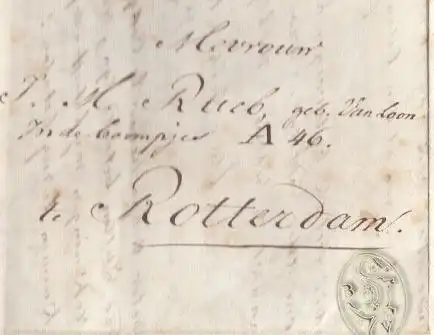 Mevrouw
J. M. Rueb, geb. Van Loon
In de boompjes A 46.
te Rotterdam.